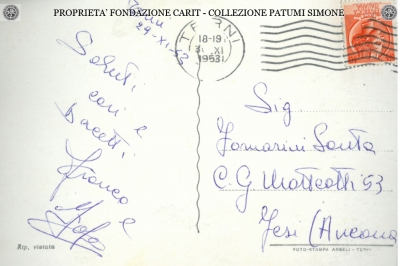 PROPRIETA' FONDAZIONE CARIT - COLLEZIONE PATUMI SIMONE
Terni
29-XI-53
Saluti
con e
bacetti
Franco e
TERNI
18-19
XI
1953
Sig
Fornarini Santa
C. G Matteotti 53
Jesi (Ancona
Rip. vietata
FOTO-STAMPA ANGELI - TERNI